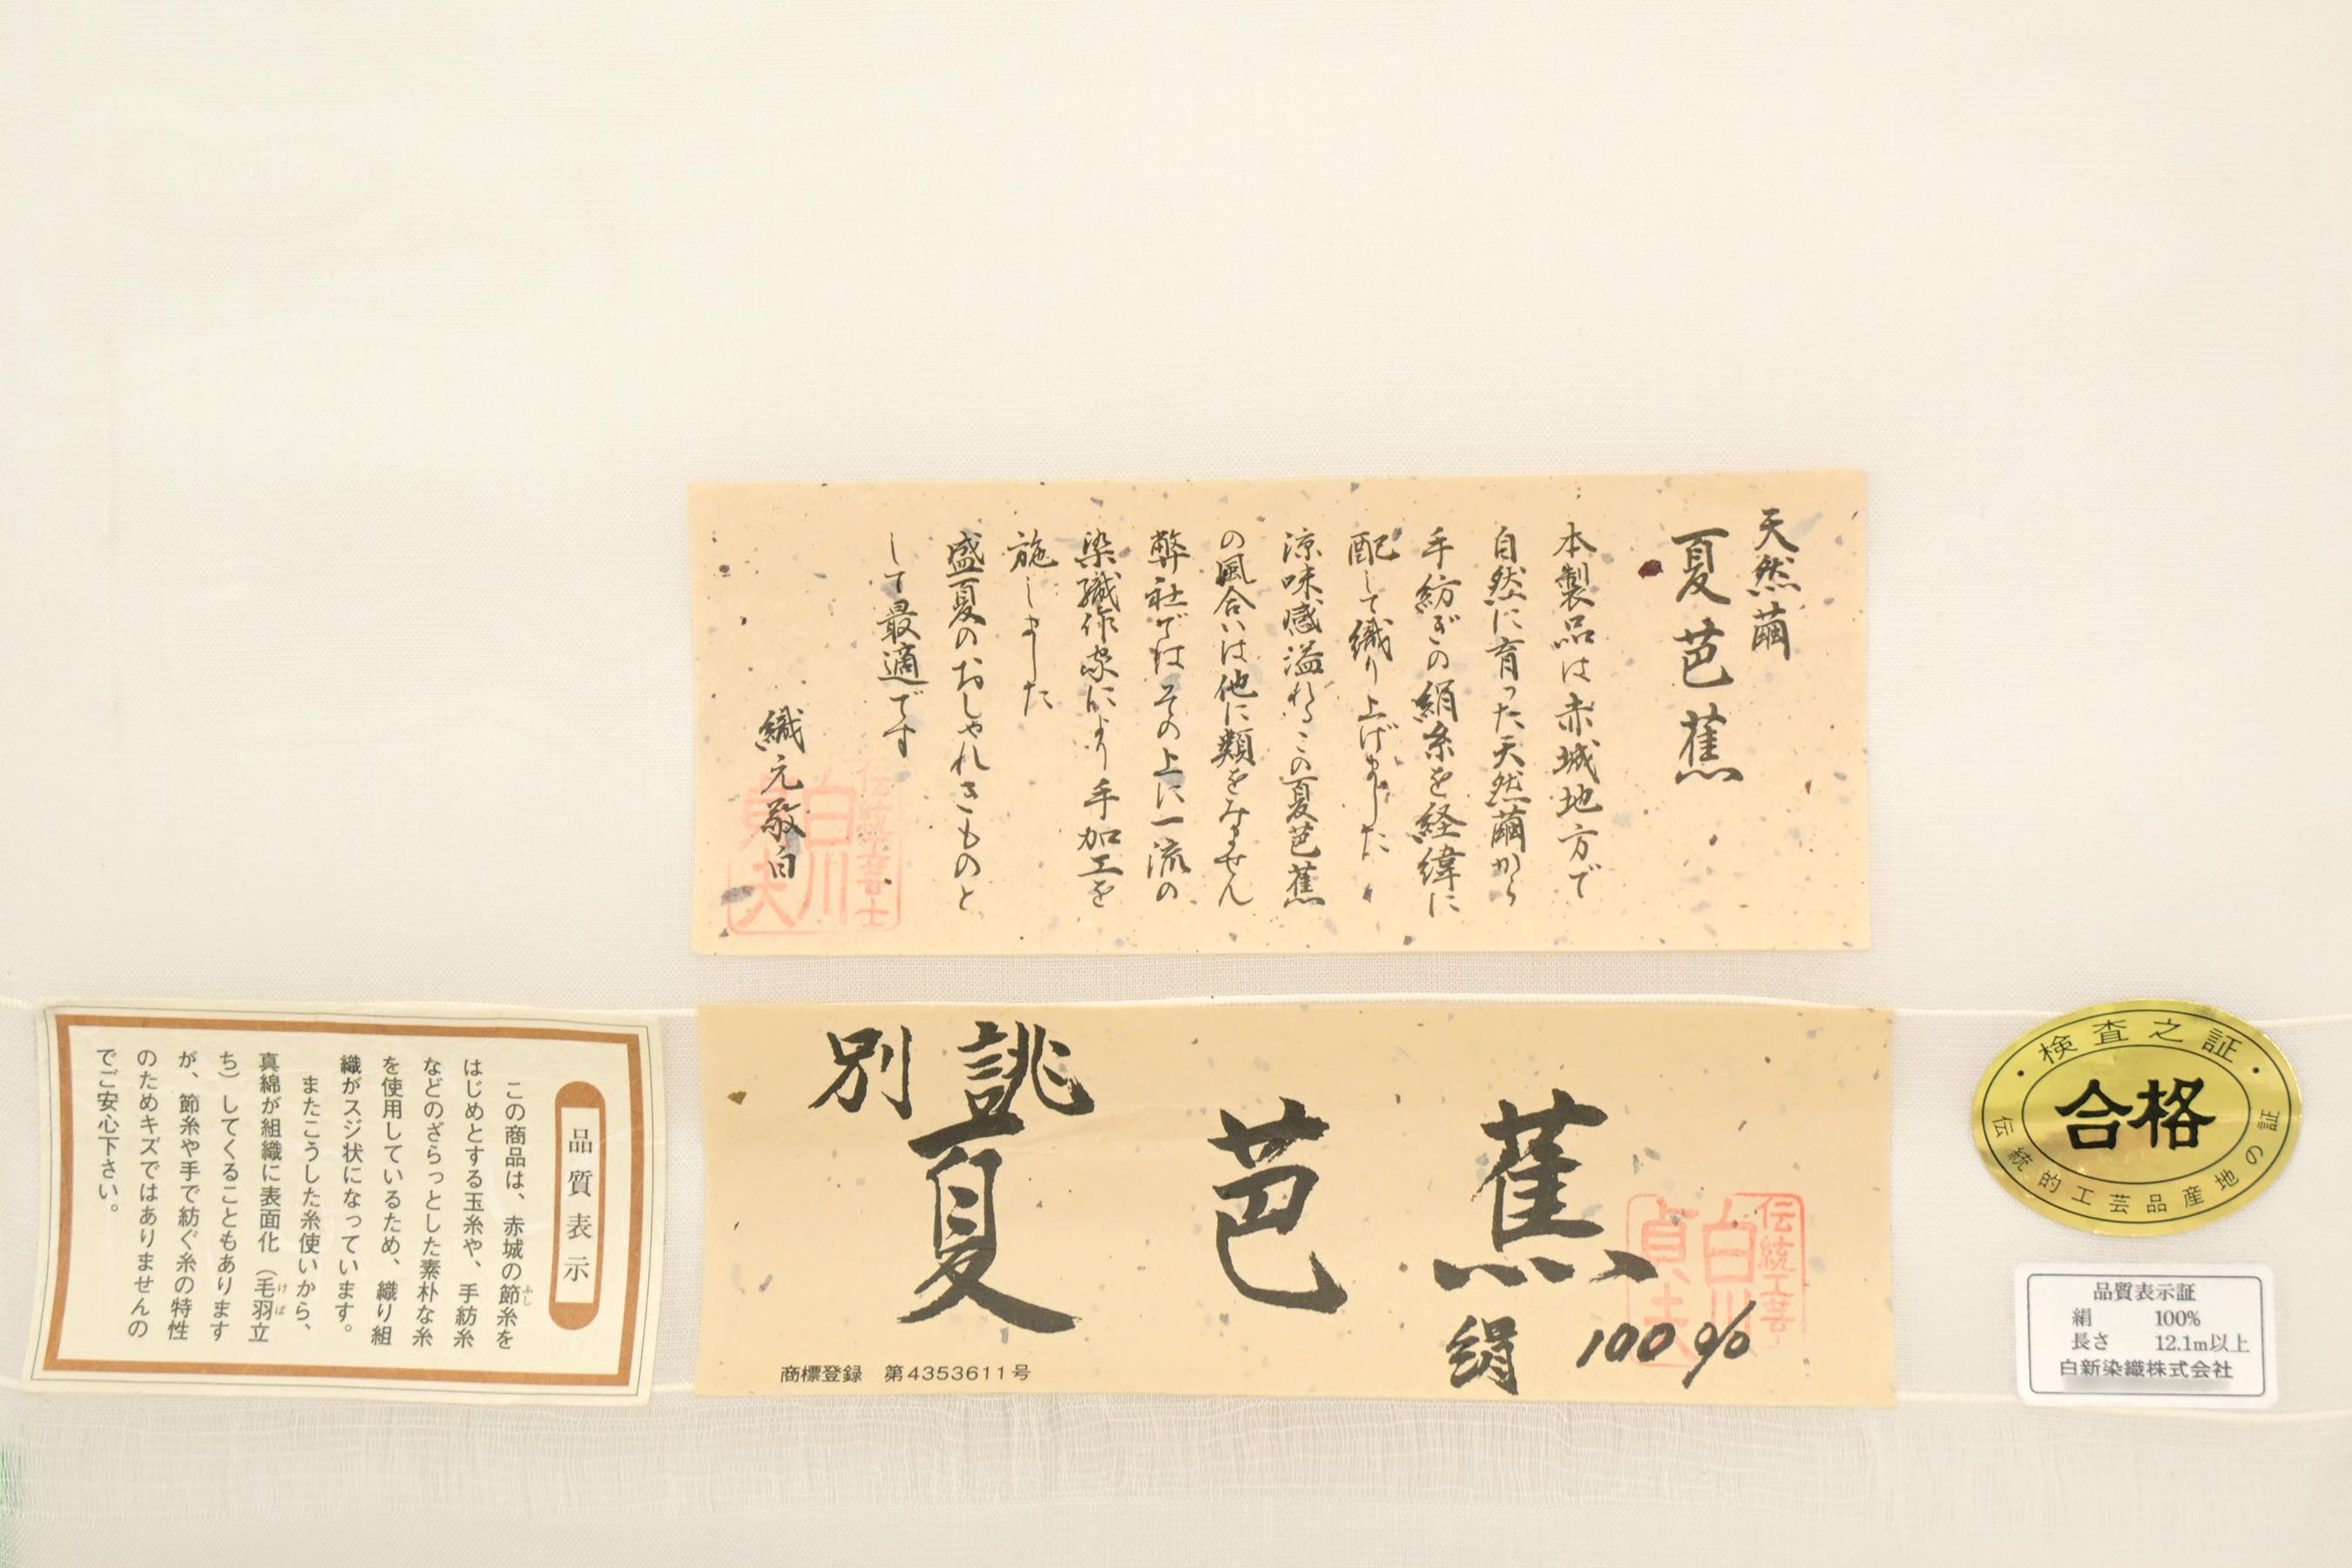 天然繭
夏芭蕉
本製品は赤城地方で
自然に育った天然繭から
手紡ぎの絹糸を経緯に
配して織り上げました
涼味感溢れるこの夏芭蕉
の風合いは他に類をみません
弊社ではその上に一流の
染織作家により手加工を
施しました
盛夏のおしゃれきものと
して最適です
織元敬白
伝統工芸士
白川
貞夫
品質表示
この商品は、赤城の節糸を
ふし
はじめとする玉糸や、手紡糸
などのざらっとした素朴な糸
を使用しているため、織り組
織がスジ状になっています。
またこうした糸使いから、
真綿が組織に表面化（毛羽立
けば
ち）してくることもあります
が、節糸や手で紡ぐ糸の特性
のためキズではありませんの
でご安心下さい。
別誂
夏芭蕉
絹 100%
商標登録 第4353611号
伝統工芸士
白川
貞夫
・検査之証・
合格
伝統的工芸品産地の証
品質表示証
絹 100%
長さ 12.1m以上
白新染織株式会社